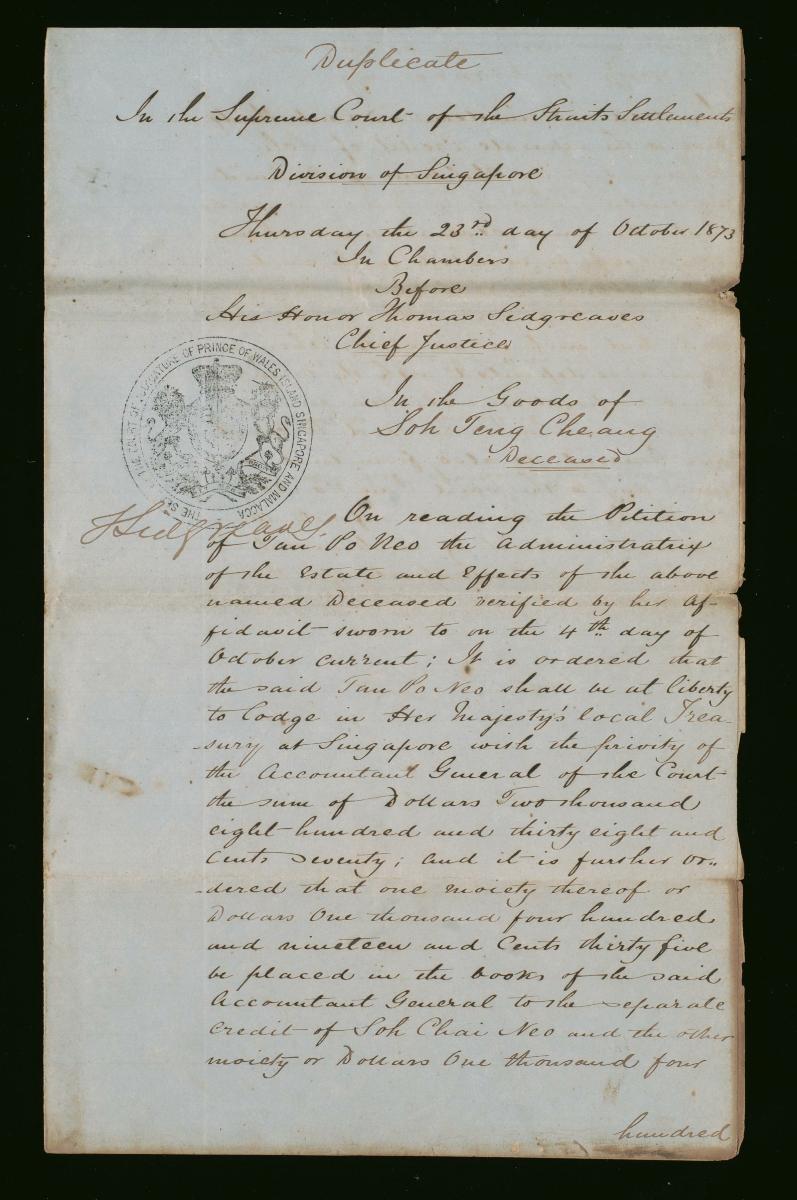 Duplicate
In the Supreme Court of the Straits Settlements
Division of Singapore
Thursday the 23rd day of October 1873
In Chambers
Before
His Honor Thomas Sidgreaves
Chief Justice
THE COURT OF JUDICATURE OF PRINCE OF WALES ISLAND SINGAPORE AND MALACCA
THE SE
In the Goods of
Soh Teng Cheang
Deceased
TSidgreaves.
On reading the Petition
of Tan Po Neo the Administratrix
of the Estate and Effects of the above
named Deceased verified by her Af-
fidavit sworn to on the 4th day of
October current; It is ordered that
the said Tan Po Neo shall be at liberty
to lodge in Her Majesty's local Trea-
-sury at Singapore with the privity of
the Accountant General of the Court
the sum of Dollars Two thousand
eight hundred and thirty eight and
Cents Seventy; and it is further or-
-dered that one moiety thereof or
Dollars One thousand four hundred
and nineteen and Cents thirty five
be placed in the books of the said
Accountant General to the separate
credit of Soh Chai Neo and the other
moiety or Dollars One thousand four
hundred